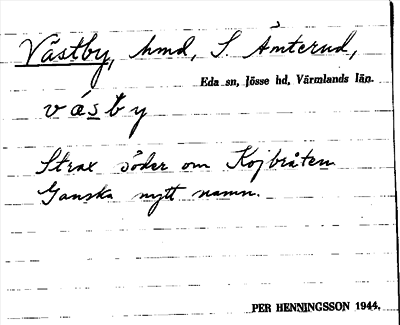 Västby, hmd, S. Ämterud,
Eda sn, Jösse hd, Värmlands län.
väsby
Strax söder om Kojbråten
Ganska nytt namn.
PER HENNINGSSON 1944.